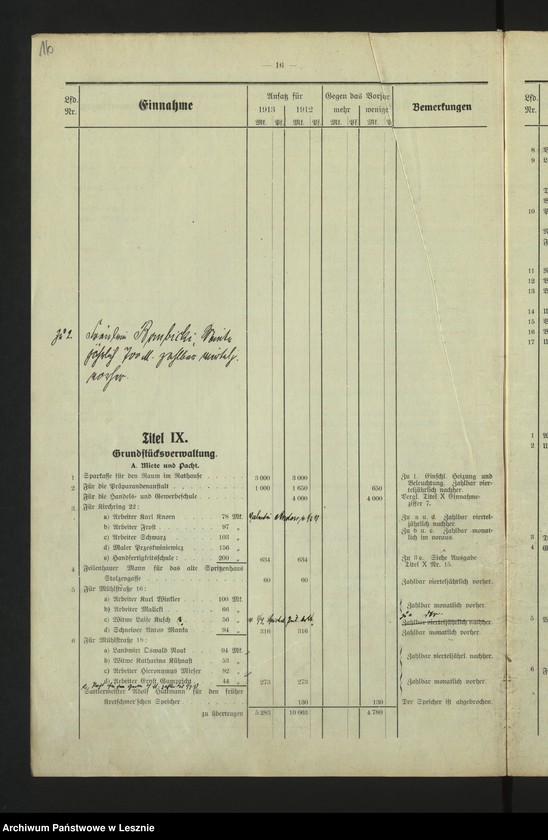 16
— 16 —
Lfd. Nr.
Einnahme
Ansatz für
1913
1912
Mk. Pf. Mk. Pf.
Gegen das Vorjahr
mehr
weniger
Mk. Pf. Mk.
Bemerkungen
Lfd. Nr.
Zu 2. Fräulein Rombicki, Miete
jährlich
zahlbar
vorher.
Titel IX.
Grundstücksverwaltung.
A. Miete und Pacht.
1 Sparkasse für den Raum im Rathause 3 000 3 000 Zu 1. Einschl. Heizung und
Beleuchtung. Zahlbar vier-
teljährlich nachher.
2 Für die Präparandenanstalt 1 000 1 650 650
Für die Handels- und Gewerbeschule 4 000 4 000 Vergl. Titel X Einnahme-
ziffer 7.
3 Für Kirchring 22:
a) Arbeiter Karl Knorn 78 Mk. Zu a u. d. Zahlbar viertel-
jährlich nachher.
b) Arbeiter Frost 97 „ Zu b u. c. Zahlbar monat-
c) Arbeiter Schwarz 103 „ lich im voraus.
d) Maler Przeskwiniewicz 156 „
e) Handfertigkeitsschule: 200 „ 634 634 Zu 3 e. Siehe Ausgabe
Titel X Nr. 15.
4 Feilenhauer Mann für das alte Spritzenhaus
Stolzengasse 60 60 Zahlbar vierteljährlich vorher.
5 Für Mühlstraße 16:
a) Arbeiter Karl Winkler 100 Mk.
b) Arbeiter Malicki 66 „ Zahlbar monatlich vorher.
c) Witwe Luise Kusch 56 „ Zahlbar vierteljährlich nachher.
d) Schneider Anton Manka 94 „ 316 316 Zahlbar monatlich vorher.
6 Für Mühlstraße 18:
a) Landwirt Oswald Naat 94 Mk.
b) Witwe Katharina Kühnast 53 „ Zahlbar vierteljährl. nachher.
c) Arbeiter Hieronymus Mieser 82 „
d) Arbeiter Ernst 44 „ 273 273 Zahlbar monatlich vorher.
Sattlermeister Adolf Hüttmann für den früher
Kretschmer'schen Speicher 130 130 Der Speicher ist abgebrochen.
zu übertragen 5 283 10 063 4 780
8
9
10
11
12
13
14
15
16
17
1
2
3
4
5
6
Archiwum Państwowe w Lesznie